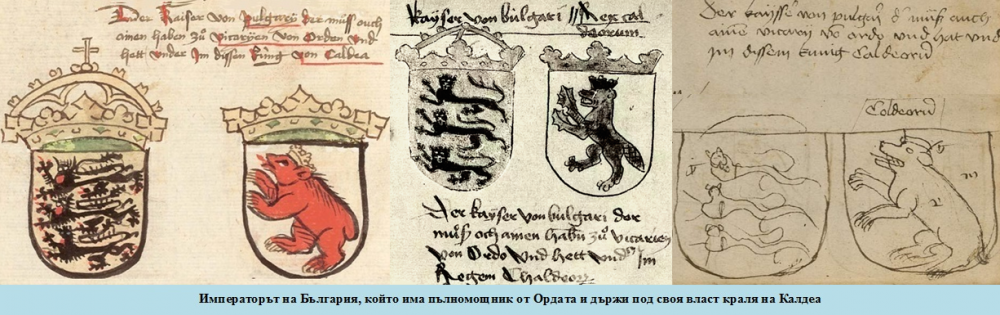 Ender Kaiser von pulgary der müss ouch
ainen haben zü vicaryen von Orden und
hett under Im dissen king von Caldea
kayser von bulgari || Rex cal
deorum
Der kayser von bulgari der
müss och ainen habn zü vicarien
von Ordo und hett undr Im
Regem Chaldeor
Der kaysser von pulgari d müss auch
ame vicarii vo ordo und hat und
Im dissem kunig Caldeoru
Caldeoru
Императорът на България, който има пълномощник от Ордата и държи под своя власт краля на Калдеа